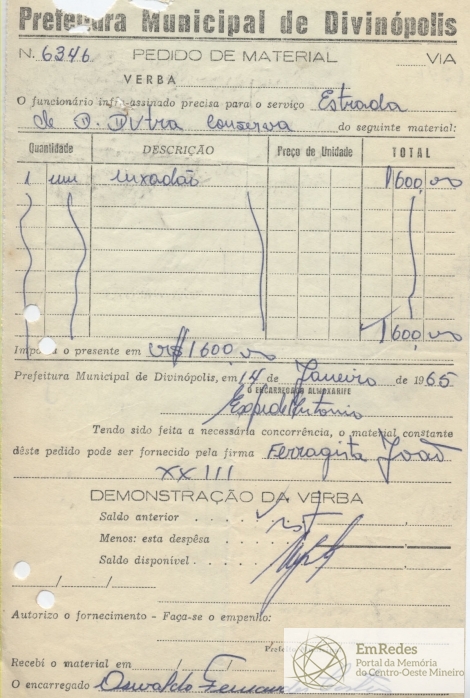 Prefeitura Municipal de Divinópolis
N. 6346 PEDIDO DE MATERIAL VIA
VERBA
O funcionário infra-assinado precisa para o serviço Estrada
de D. Dutra Conserva do seguinte material:
Quantidade DESCRIÇÃO Preço de Unidade TOTAL
1 um enxadão 1600,00
1600,00
Importa o presente em Cr$ 1600,00
Prefeitura Municipal de Divinópolis, em 14 de Janeiro de 1965
O ENCARREGADO ALMOXARIFE
Tendo sido feita a necessária concorrência, o material constante
dêste pedido pode ser fornecido pela firma Ferragista João
XXIII
DEMONSTRAÇÃO DA VERBA
Saldo anterior . . . . .
Menos: esta despêsa
Saldo disponível . . . . .
/ /
Autorizo o fornecimento - Faça-se o empenho:
Recebi o material em / /
O encarregado Oswaldo
EmRedes
Portal da Memória
do Centro-Oeste Mineiro